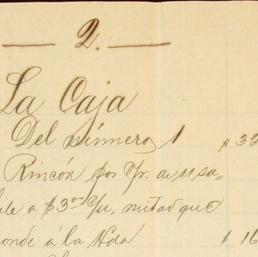 2.
La Caja
Del número 1 $ 32
Rincón por Fr. de 11 sa=
le a $3.00 c/u, mitad que
onde á la Hda $ 16